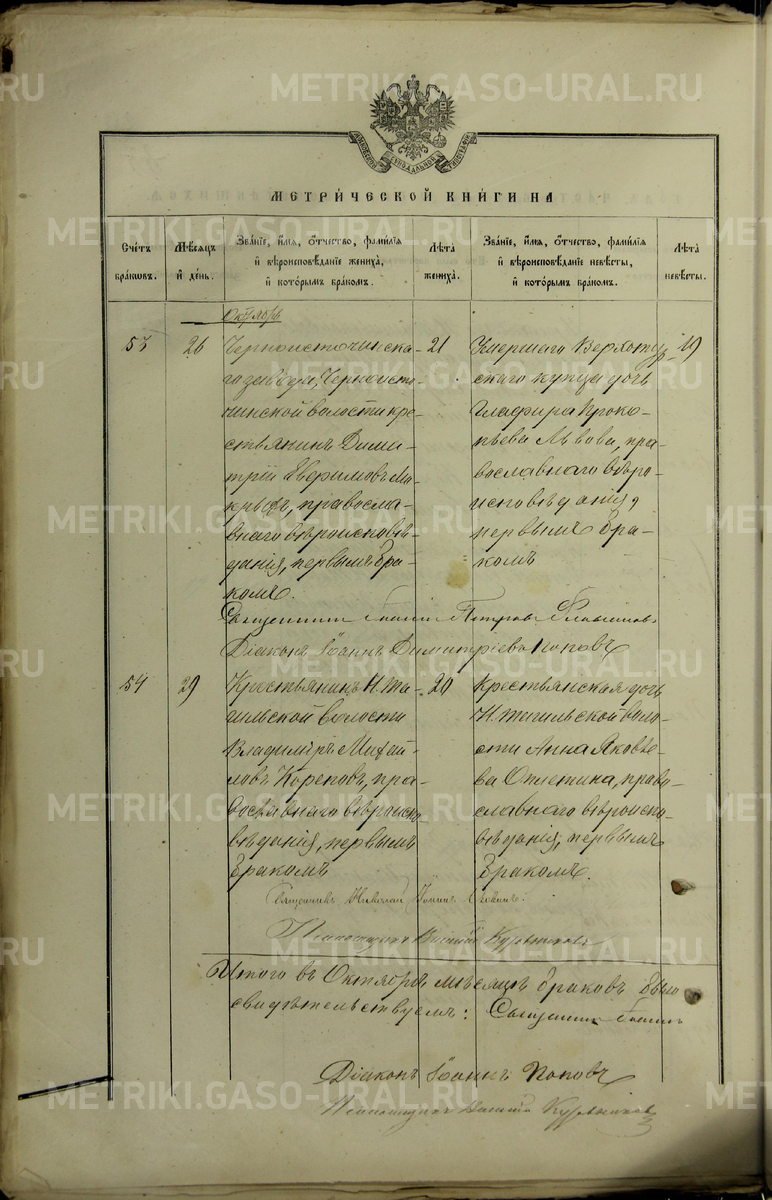 METRIKI.GASO-URAL.RU
МЕТРИ́ЧЕСКОЙ КНИ́ГИ НА
Сче́тъ бра́ковъ.
Мѣ́сяцъ и҆ де́нь.
Зва́нїе, и҆́мя, ѻ҆́тчество, фами́лїя и҆ вѣроисповѣ́данїе жениха̀, и҆ кото́рымъ бра́комъ.
Лѣ́та жениха̀.
Зва́нїе, и҆́мя, ѻ҆́тчество, фами́лїя и҆ вѣроисповѣ́данїе невѣ́сты, и҆ кото́рымъ бра́комъ.
Лѣ́та невѣ́сты.
Октябрь
53
26
Черноисточинска-
го завода, Черноисто-
чинской волости кре-
стьянинъ Дими-
трій Евфимовъ Мо-
крыхъ, правосла-
внаго вѣроисповѣ-
данія, первымъ бра-
комъ.
21
Умершаго Верхотур-
скаго купца дочь
Глафира Проко-
пьева Львова, пра-
вославнаго вѣро-
исповѣданія,
первымъ бра-
комъ
19
Священникъ Іоаннъ Петровъ
Діаконъ Іоаннъ Димитріевъ Поповъ
54
29
Крестьянинъ Н. Та-
гильской волости
Владимиръ Михай-
ловъ Кореповъ, пра-
вославнаго вѣроиспо-
вѣданія, первымъ
бракомъ
20
Крестьянская дочь
Н. Тагильской воло-
сти Анна Яковле-
ва Оплетина, право-
славнаго вѣроиспо-
вѣданія, первымъ
бракомъ.
Священникъ Николай
Псаломщикъ
Итого въ Октябрѣ мѣсяцѣ браковъ было
свидѣтельствуемъ: Священникъ Іоаннъ
Діаконъ Іоаннъ Поповъ
Псаломщикъ